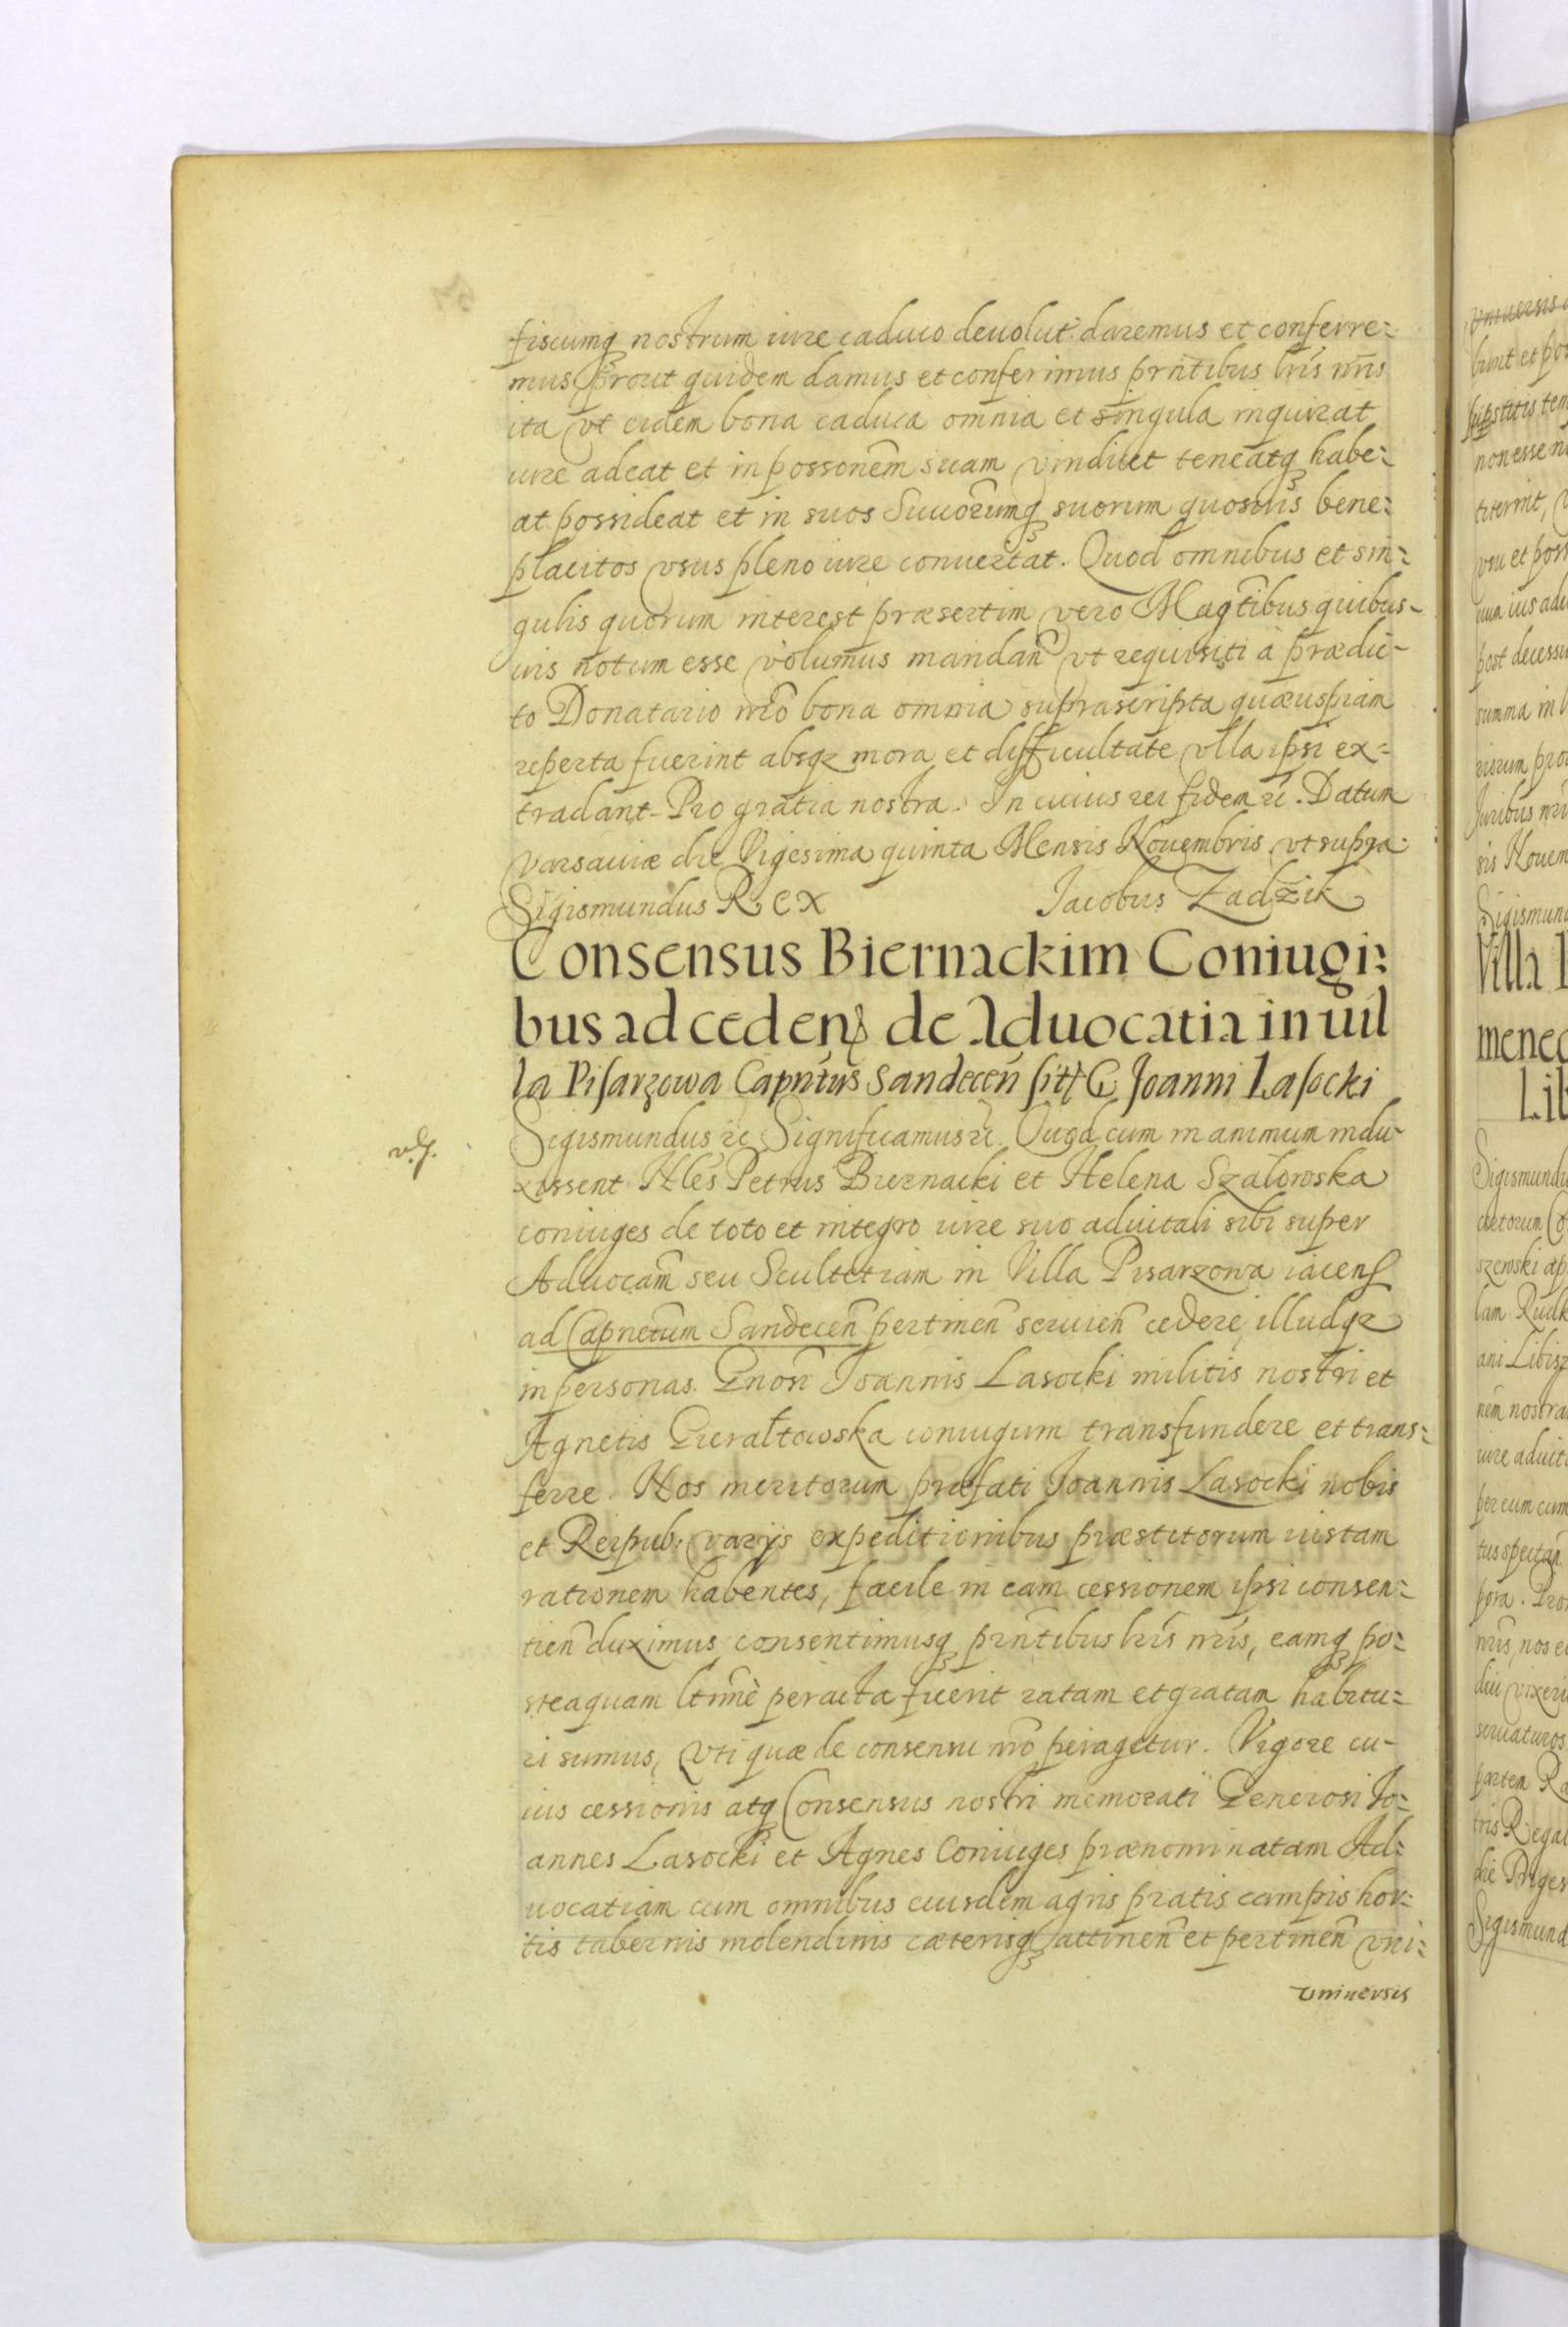 fiscumq nostrum iure caduco deuolut: daremus et conferre:
mus prout quidem damus et conferimus pr̃ntibus lr̃is nr̃is
ita vt eidem bona caduca omnia et singula inquirat
iure adeat et in possonẽm suam vindicet teneatq habe:
at possideat et in suos Succõrumq suorum quosuis bene:
placitos vsus pleno iure conuertat. Quod omnibus et sin:
gulis quorum interest præsertim vero Magt̃ibus quibus-
uis notum esse volumus mandañ vt requisiti à prædic-
to Donatario nr̃o bona omnia suprascripta quæuspiam
reperta fuerint absqz mora et difficultate vlla ipsi ex:
tradant. Pro gratia nostra. In cuius rei fidem rc̃. Datum
Varsauiæ die Vigesima quinta Mensis Nouembris vt supra.
Sigismundus Rex Jacobus Zadzik
Consensus Biernackim Coniugi:
bus ad ceden de Aduocatia in uil
la Pisarzowa Capñtus Sandeceñ sit G Joanni Lasocki
v.s.
Sigismundus rc Significamus rc̃. Quod cum in animum indu-
xissent Nles Petrus Biernacki et Helena Szalowska
coniuges de toto et integro iure suo aduitali sibi super
Aduocam̃ seu Scultetiam in Villa Pisarzowa iacens
ad Capnetum Sandeceñ pertineñ seruieñ cedere, illudqz
in personas Gnosi Joannis Lasocki militis nostri et
Agnetis Gieraltowska coniugum transfundere et trans:
ferre. Nos meritorum præfati Joannis Lasocki nobis
et Reipub: varijs expeditionibus præstitorum iustam
rationem habentes, facile in eam cessionem ipsi consen:
tieñ duximus, consentimusq pr̃ntibus lr̃is nr̃is, eamq po:
steaquam ltim̃è peracta fuerit ratam et gratam habitu:
ri sumus, vti quæ de consensu nr̃o peragetur. Vigore cu-
ius cessionis atq Consensus nostri memorati Generosi Jo:
annes Lasocki et Agnes Coniuges prænominatam Ad:
uocatiam cum omnibus eiusdem agris pratis campis hor:
tis tabernis molendinis cæterisq attineñ et pertineñ vni:
vniuersis